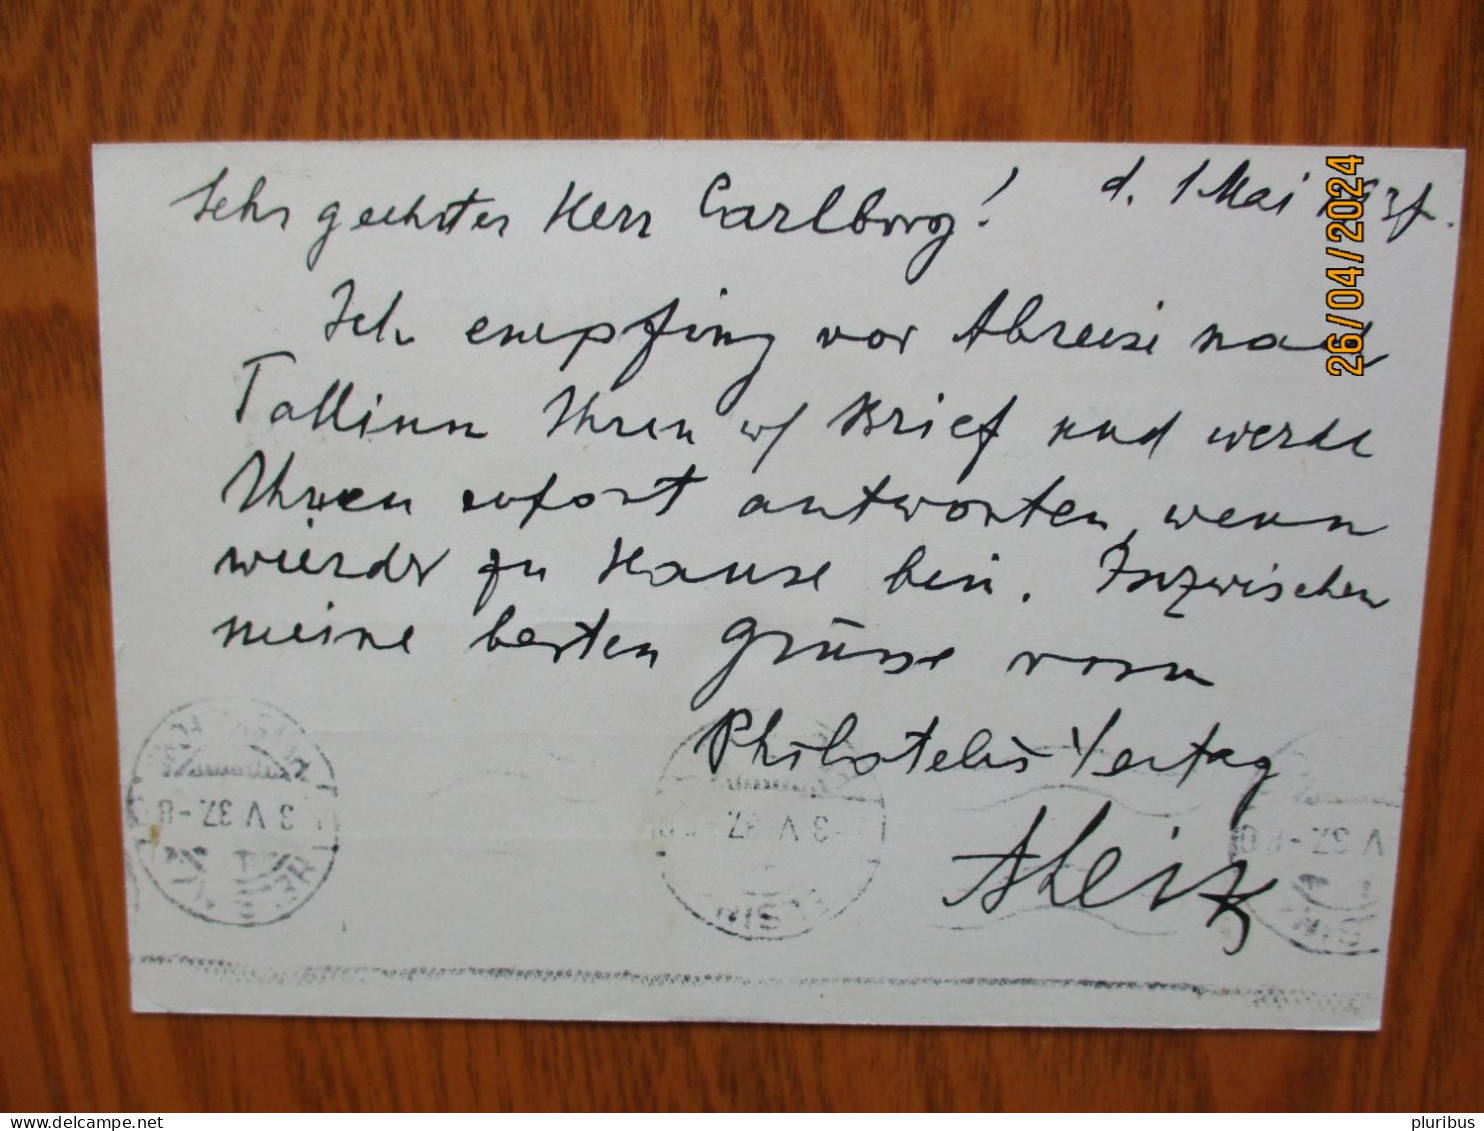 Sehr geehrter Herr Carlborg! d. 1 Mai 1937.
Ich empfing vor Abreise nach
Tallinn Ihren w/ Brief und werde
Ihnen sofort antworten, wenn
wieder zu Hause bin. Inzwischen
meine besten Grüsse vom
Philatelie Verlag
26/04/2024
3 V 37.-8
3 V 37.
V 37.-8
pluribus